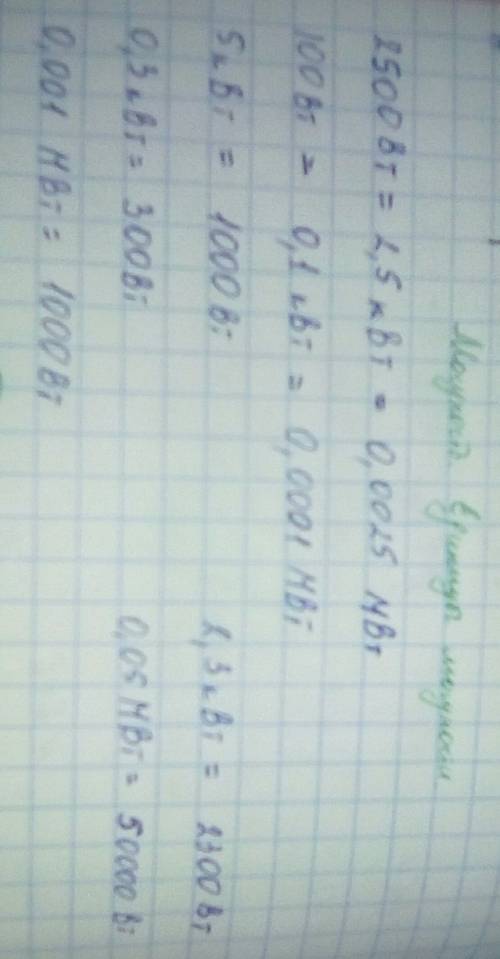 Мощность Единицы мощности
2500 Вт = 2,5 кВт = 0,0025 МВт
100 Вт = 0,1 кВт = 0,0001 МВт
5 кВт = 1000 Вт 2,3 кВт = 2300 Вт
0,3 кВт = 300 Вт 0,05 МВт = 50000 Вт
0,001 МВт = 1000 Вт